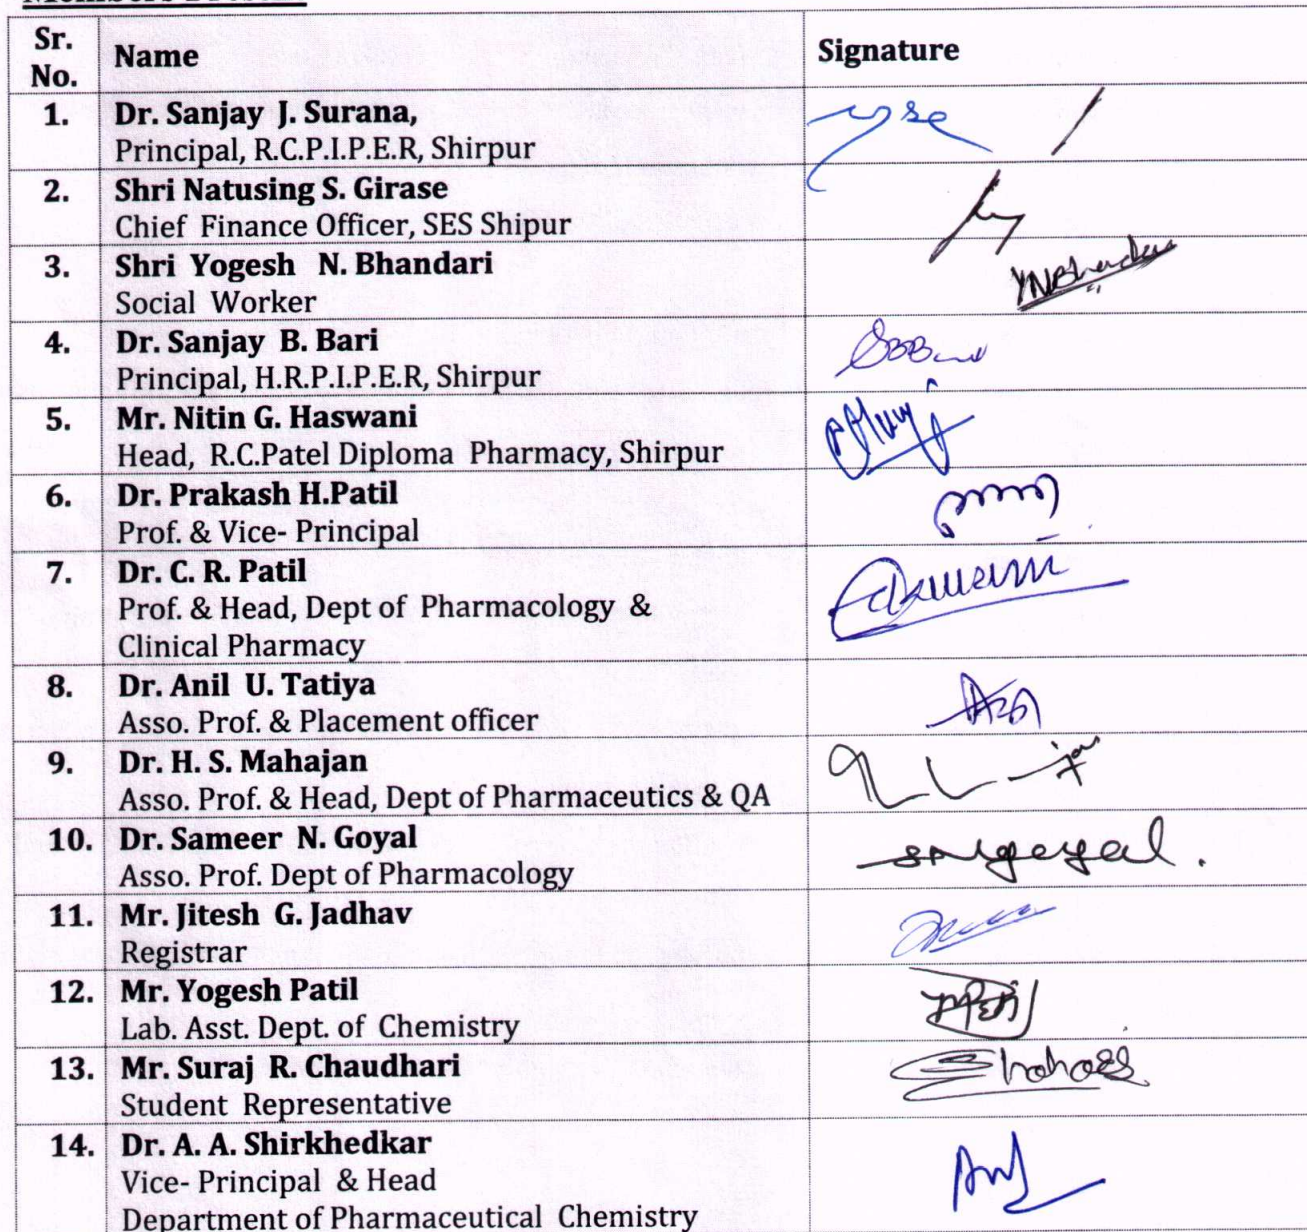 Sr. No.
Name
Signature
1.
Dr. Sanjay J. Surana,
Principal, R.C.P.I.P.E.R, Shirpur
2.
Shri Natusing S. Girase
Chief Finance Officer, SES Shipur
3.
Shri Yogesh N. Bhandari
Social Worker
4.
Dr. Sanjay B. Bari
Principal, H.R.P.I.P.E.R, Shirpur
5.
Mr. Nitin G. Haswani
Head, R.C.Patel Diploma Pharmacy, Shirpur
6.
Dr. Prakash H.Patil
Prof. & Vice- Principal
7.
Dr. C. R. Patil
Prof. & Head, Dept of Pharmacology &
Clinical Pharmacy
8.
Dr. Anil U. Tatiya
Asso. Prof. & Placement officer
9.
Dr. H. S. Mahajan
Asso. Prof. & Head, Dept of Pharmaceutics & QA
10.
Dr. Sameer N. Goyal
Asso. Prof. Dept of Pharmacology
11.
Mr. Jitesh G. Jadhav
Registrar
12.
Mr. Yogesh Patil
Lab. Asst. Dept. of Chemistry
13.
Mr. Suraj R. Chaudhari
Student Representative
14.
Dr. A. A. Shirkhedkar
Vice- Principal & Head
Department of Pharmaceutical Chemistry